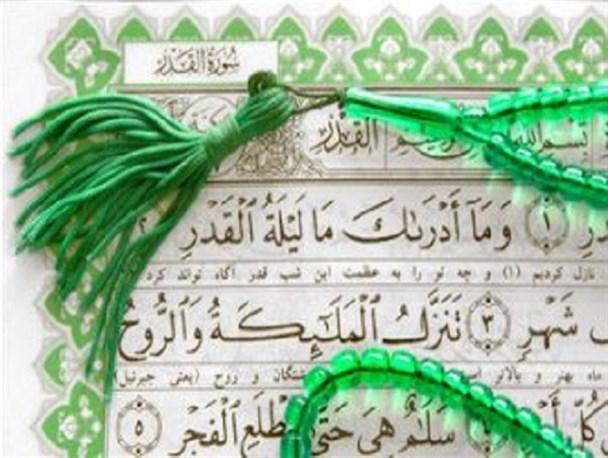 سُورَةُ الْقَدْرِ
بِسْمِ اللَّهِ الْقَدْرِ
دْرِ ١ وَمَآ أَدْرَىٰكَ مَا لَيْلَةُ ٱلْقَدْرِ ٢
نازل کردیم (١) و چه تو را به عظمت این شب قدر آگاه تواند کرد
شَهْرٍ ٣ تَنَزَّلُ ٱلْمَلَٰٓئِكَةُ وَٱلرُّوحُ
ماه بهتر و بالاتر و روح (یعنی جبرئیل)
كُلِّ سَلَٰمٌ هِيَ حَتَّىٰ مَطْلَعِ ٱلْفَجْرِ ٥